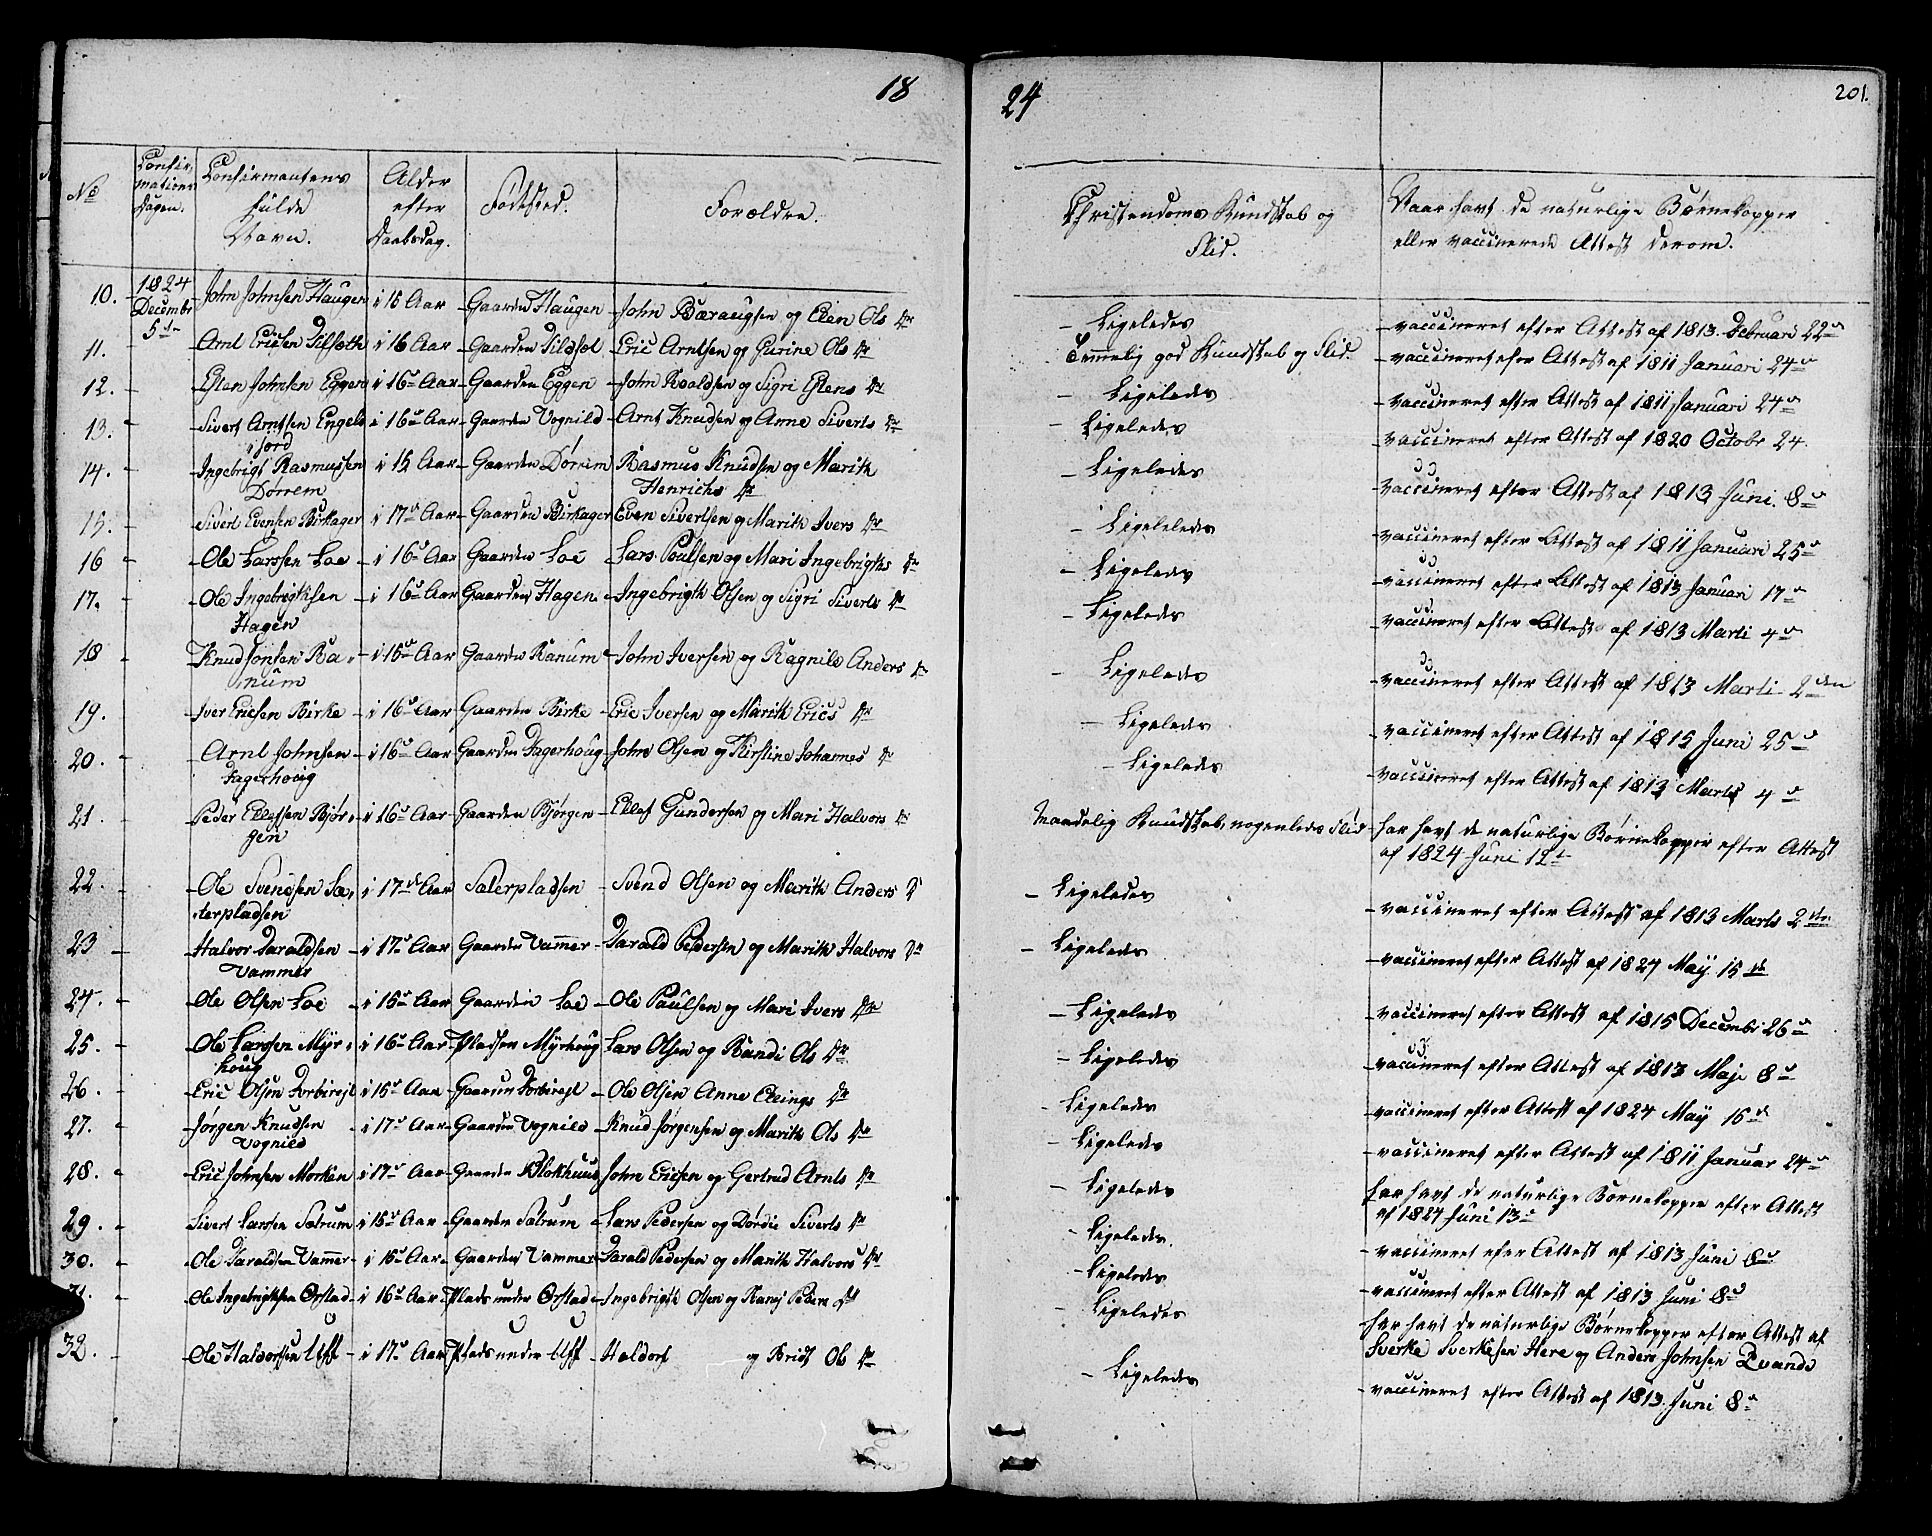 18
24
201.
No
Confir-
mations
Dagen.
Confirmantens
fulde
Navn.
Alder
efter
Daabsdag.
Fødested.
Forældre.
Christendoms Kundskab og
Flid.
Naar havt de naturlige Børnekopper
eller vaccinerede Attest derom.
10. 1824 Decembr 5te John Johnsen Haugen i 15 Aar Gaarden Haugen John Baraugsen og Elen Ols Dr - Ligeledes - vaccineret efter Attest af 1813 Februari 22
11. Arnt Ericsen i 16 Aar Gaarden Eric Arntsen og Gurine Ols Dr Temmelig god Kundskab og Flid. - vaccineret efter Attest af 1811 Januari 24
12. Esten Johnsen Eggen i 16 Aar Gaarden Eggen John Roaldsen og Sigri Estens Dr - Ligeledes - vaccineret efter Attest af 1811 Januari 24
13. Sivert Arntsen Engels i 16 Aar Gaarden Vognild Arnt Knudsen og Anne Siverts Dr - Ligeledes vaccineret efter Attest af 1820 Octobr 24.
jord
14. Ingebrigt Rasmussen i 15 Aar Gaarden Dørrem Rasmus Knudsen og Marith - Ligeledes vaccineret efter Attest af 1813 Juni 8
Dørrem Henrichs Dr
15. Sivert Evensen Birkager i 17 Aar Gaarden Birkager Even Sivertsen og Marith Ivers Dr - Ligeledes - vaccineret efter Attest af 1811 Januari 25
16 Ole Larssen Loe i 16 Aar Gaarden Loe Lars Poulsen og Mari Ingebrigths Dr - Ligeledes - vaccineret efter Attest af 1813 Januari 17
17. Ole Ingebrigtsen i 16 Aar Gaarden Hagen Ingebrigth Olsen og Sigri Siverts Dr - Ligeledes - vaccineret efter Attest af 1813 Marti 4
Hagen
18 Knud Jonsen Ra- i 15 Aar Gaarden Ranum John Iversen og Ragnild Anders Dr - Ligeledes - vaccineret efter Attest af 1813 Marti 2den
num
19. Iver Ericsen Birke i 16 Aar Gaarden Birke Eric Iversen og Marith Erics Dr - Ligeledes - vaccineret efter Attest af 1815 Juni 25
20. Arnt Johnsen i 16 Aar Gaarden Fagerhoug John Olsen og Kirstine Johannes Dr - Ligeledes - vaccineret efter Attest af 1813 Marts 4
Fagerhoug
21. Peder Ellefsen Bjør- i 16 Aar Gaarden Bjørgen Ellef Gundersen og Mari Halvors Dr Maadelig Kundskab, nogenledes Flid - har havt de naturlige Børnekopper efter Attest
gen af 1824 Juni 12
22. Ole Svendsen Sæ- i 17 Aar Sæterpladsen Svend Olsen og Marith Anders D - Ligeledes - vaccineret efter Attest af 1813 Marts 2den
terpladsen
23 Halvor Haraldsen i 17 Aar Gaarden Vammer Harald Pedersen og Marith Halvors Dr - Ligeledes - vaccineret efter Attest af 1824 May 15de
Vammer
24. Ole Olsen Loe i 15 Aar Gaarden Loe Ole Paulsen og Mari Ivers Dr - Ligeledes - vaccineret efter Attest af 1815 Decembr 26
25. Ole Larssen Myr- i 16 Aar Pladsen Myrhoug Lars Olsen og Randi Ols Dr - Ligeledes - vaccineret efter Attest af 1813 Maji 8
houg
26. Eric Olsen i 15 Aar Gaarden Ole Olsen Anne Elings Dr - Ligeledes - vaccineret efter Attest af 1824 May 15
27. Jørgen Knudsen i 17 Aar Gaarden Vognild Knud Jørgensen og Marith Ols Dr - Ligeledes - vaccineret efter Attest af 1811 Januar 24
Vognild
28. Eric Johnsen Morken i 17 Aar Gaarden Klokhuus John Ericsen og Gertrud Arnts Dr - Ligeledes har havt de naturlige Børnekopper efter Attest
af 1824 Juni 13
29. Sivert Larsen Sætrum i 15 Aar Gaarden Sætrum Lars Pedersen og Dordi Siverts Dr - Ligeledes. - vaccineret efter Attest af 1813 Juni 8
30. Ole Haraldsen Vammer i 15 Aar Gaarden Vammer Harald Pedersen og Marith Halvors Dr - Ligeledes - vaccineret efter Attest af 1813 Juni 8
31. Ole Ingebrigtsen Ørstad i 16 Aar Plads under Ørstad Ingebrigth Olsen og Ranej Peders Dr - Ligeledes har havt de naturlige Børnekopper efter Attest af
Sverke Sverkesen Here og Anders Johnsen
32. Ole Haldorsen i 17 Aar Plads under Haldorf og Bridt Ols Dr - Ligeledes - vaccineret efter Attest af 1813 Juni 8